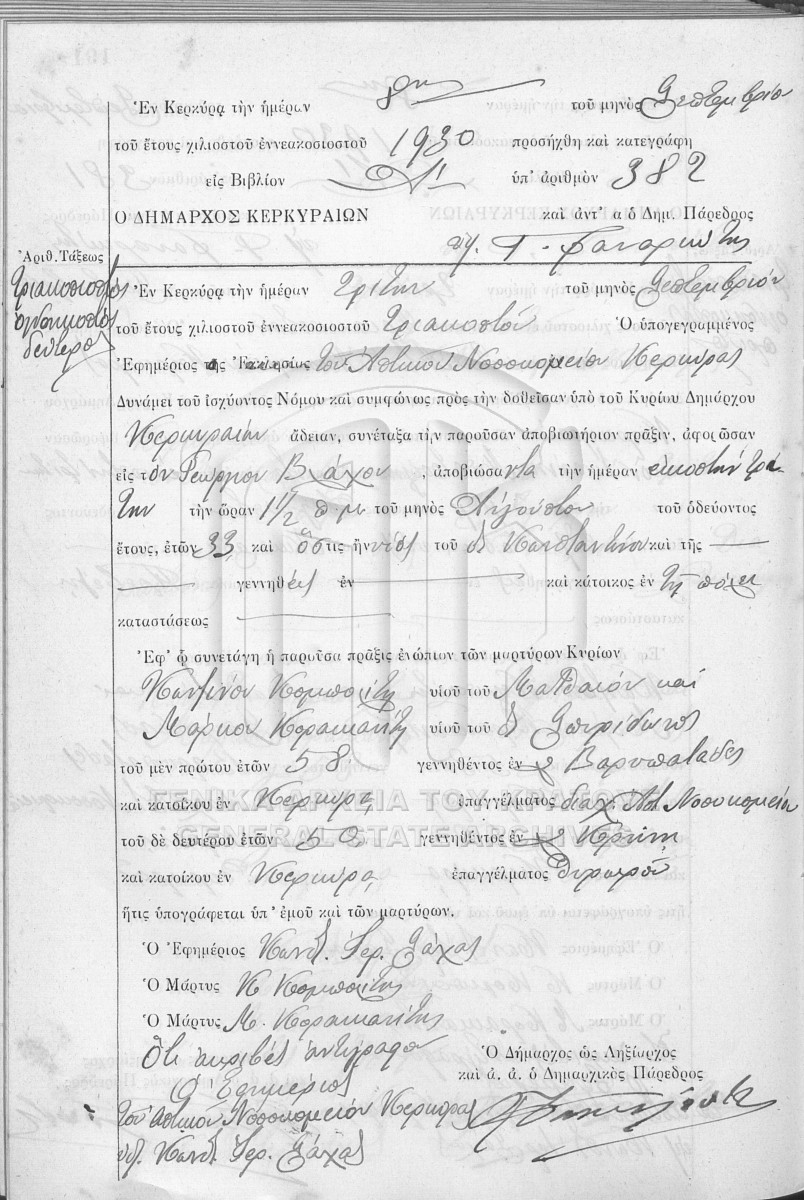 Ἐν Κερκύρᾳ τὴν ἡμέραν 8ην τοῦ μηνὸς Σεπτεμβρίου
τοῦ ἔτους χιλιοστοῦ ἐννεακοσιοστοῦ 1930 προσήχθη καὶ κατεγράφη
εἰς Βιβλίον Α' ὑπ' ἀριθμὸν 382
Ο ΔΗΜΑΡΧΟΣ ΚΕΡΚΥΡΑΙΩΝ καὶ ἀντ' α ὁ Δημ. Πάρεδρος
Ἀριθ. Τάξεως
τριακοσιοστὸς
ὀγδοηκοστὸς
δεύτερος
Ἐν Κερκύρᾳ τὴν ἡμέραν τρίτην τοῦ μηνὸς Σεπτεμβρίου
τοῦ ἔτους χιλιοστοῦ ἐννεακοσιοστοῦ τριακοστοῦ Ὁ ὑπογεγραμμένος
Ἐφημέριος τῆς Ἐκκλησίας τοῦ Ἀστικοῦ Νοσοκομείου Κερκύρας
Δυνάμει τοῦ ἰσχύοντος Νόμου καὶ συμφώνως πρὸς τὴν δοθεῖσαν ὑπὸ τοῦ Κυρίου Δημάρχου
Κερκυραίων ἄδειαν, συνέταξα τὴν παροῦσαν ἀποβιωτήριον πρᾶξιν, ἀφορῶσαν
εἰς τὸν Γεώργιον Βλάχον, ἀποβιώσαντα τὴν ἡμέραν εἰκοστὴν τρί-
την τὴν ὥραν 1 1/2 π.μ. τοῦ μηνὸς Αὐγούστου τοῦ ὁδεύοντος
ἔτους, ἐτῶν 33 καὶ ὅστις ἦν υἱὸς τοῦ Κωνσταντίνου καὶ τῆς
γεννηθεὶς ἐν καὶ κάτοικος ἐν τῇ πόλει
καταστάσεως
Ἐφ' ᾧ συνετάγη ἡ παροῦσα πρᾶξις ἐνώπιον τῶν μαρτύρων Κυρίων
Κομποΐτη υἱοῦ τοῦ Ματθαίου καὶ
Μάρκου Κορακιανίτη υἱοῦ τοῦ Σπυρίδωνος
τοῦ μὲν πρώτου ἐτῶν 58 γεννηθέντος ἐν Βαρυπατάδες
καὶ κατοίκου ἐν Κερκύρᾳ, ἐπαγγέλματος διαχ. Ἀστ. Νοσοκομείου
ΓΕΝΙΚΑ ΑΡΧΕΙΑ ΤΟΥ ΚΡΑΤΟΥΣ
GENERAL STATE ARCHIVES
τοῦ δὲ δευτέρου ἐτῶν 50, γεννηθέντος ἐν
καὶ κατοίκου ἐν Κερκύρᾳ, ἐπαγγέλματος θυρωροῦ
ἥτις ὑπογράφεται ὑπ' ἐμοῦ καὶ τῶν μαρτύρων.
Ὁ Ἐφημέριος Κωνστ. Ἱερ. Σάχας
Ὁ Μάρτυς Κ Κομποΐτης
Ὁ Μάρτυς Μ. Κορακιανίτης
Ὅτι ἀκριβὲς ἀντίγραφον
Ὁ Ἐφημέριος
τοῦ Ἀστικοῦ Νοσοκομείου Κερκύρας
ὑπ. Κωνστ. Ἱερ. Σάχας
Ὁ Δήμαρχος ὡς Ληξίαρχος
καὶ ἀ. ἀ. ὁ Δημαρχικὸς Πάρεδρος